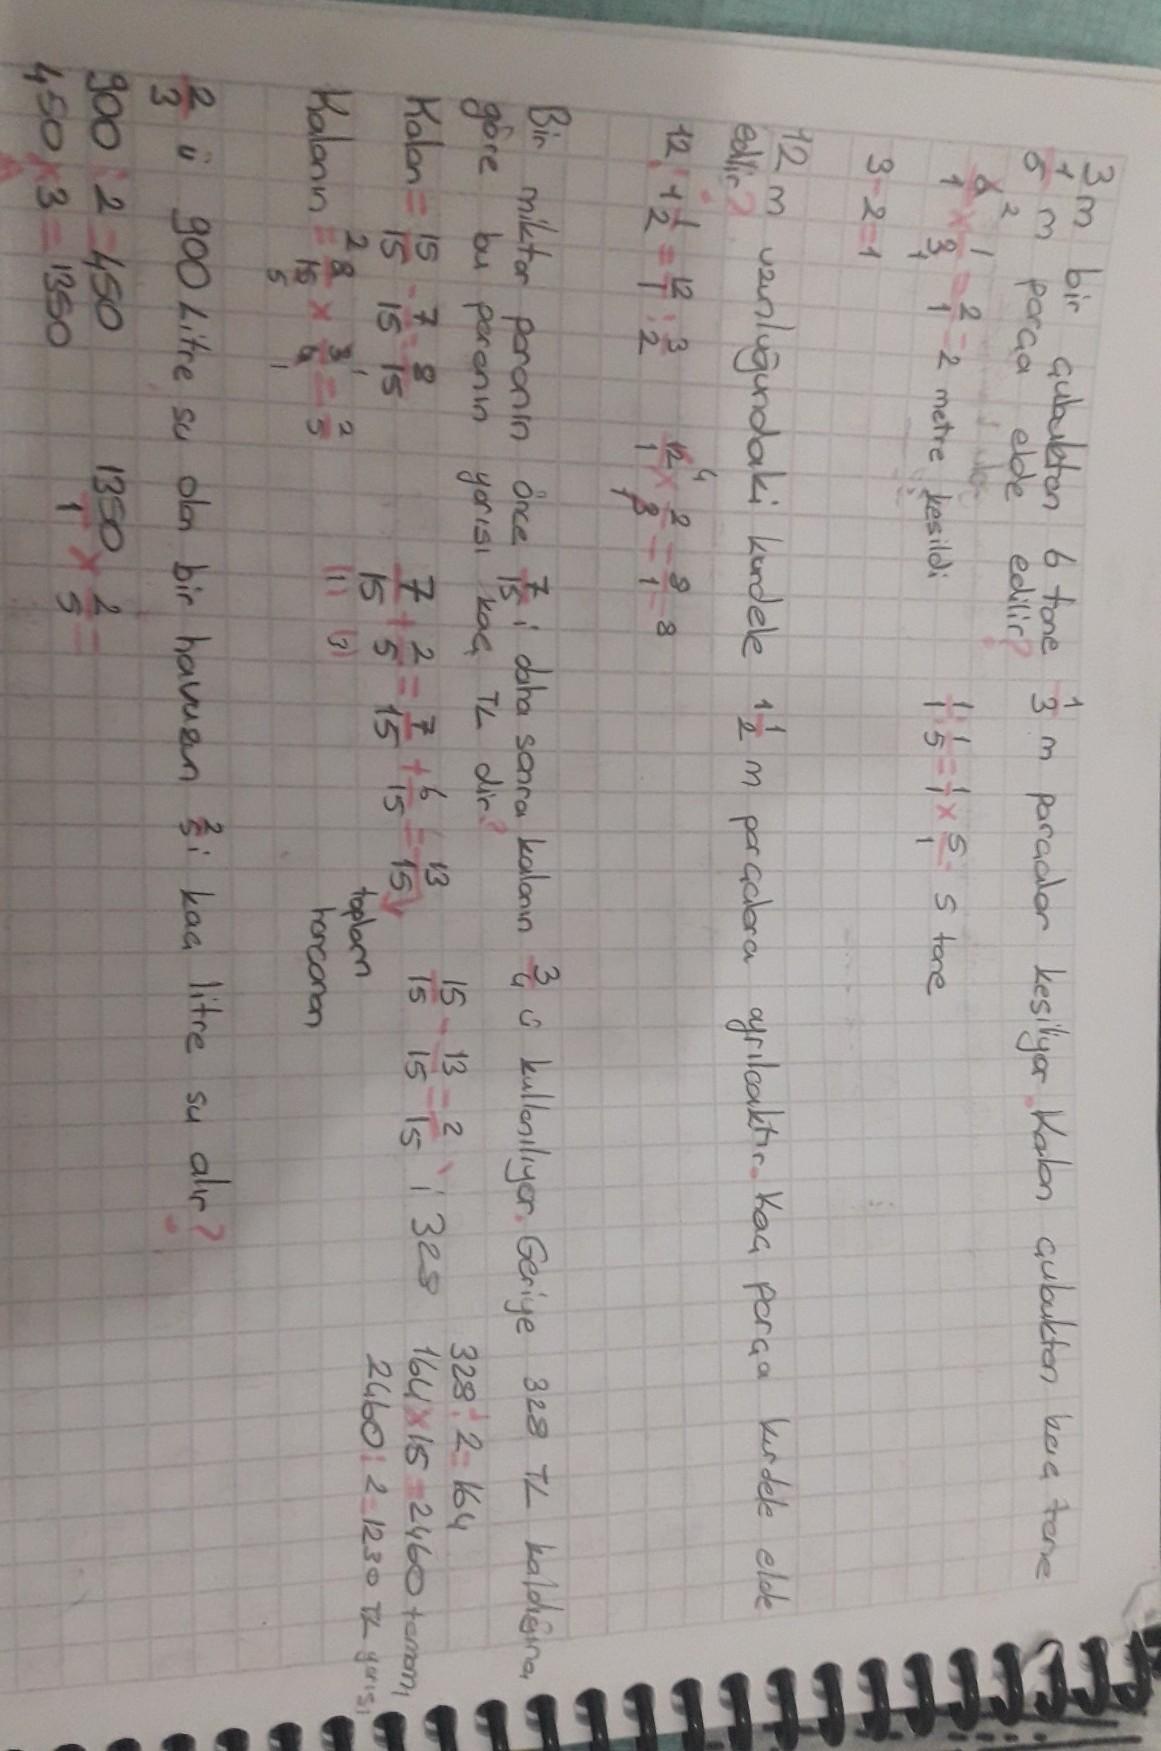 3m bir çubuktan 6 tane 1/3 m parçalar kesiliyor. Kalan çubuktan kaç tane
1/5 m parça elde edilir?
6/1 × 1/3 = 2/1 = 2 metre kesildi
1/1 : 1/5 = 1/1 × 5/1 = 5 tane
3-2=1
12 m uzunluğundaki kurdele 1 1/2 m parçalara ayrılcaktır. Kaç parça kurdele elde
edilir?
12 : 1 1/2 = 12/1 : 3/2 12/1 × 2/3 = 8/1 = 8
Bir miktar paranın önce 7/15 i daha sonra kalanın 3/4 ü kullanılıyor. Geriye 328 TL kaldığına
göre bu paranın yarısı kaç TL dir?
Kalan = 15/15 - 7/15 = 8/15
Kalanın = 8/15 × 3/4 = 2/5
7/15 + 2/5 = 7/15 + 6/15 = 13/15
(1) (3)
toplam
harcanan
15/15 - 13/15 = 2/15 'i 328
328 : 2 = 164
164 × 15 = 2460 tamamı
2460 : 2 = 1230 TL yarısı
2/3 ü 900 Litre su olan bir havuzun 2/5 i kaç litre su alır?
900 : 2 = 450
450 × 3 = 1350
1350/1 × 2/5 =